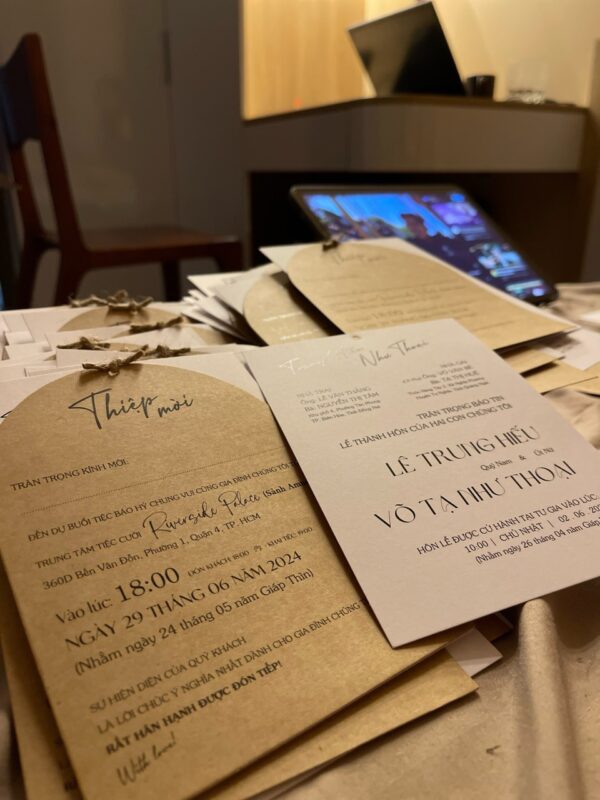 Thiệp mời
TRÂN TRỌNG KÍNH MỜI:
ĐẾN DỰ BUỔI TIỆC BÁO HỶ CHUNG VUI CÙNG GIA ĐÌNH CHÚNG TÔI
TRUNG TÂM TIỆC CƯỚI Riverside Palace (Sảnh
360D Bến Vân Đồn, Phường 1, Quận 4, TP. HCM
Vào lúc: 18:00 ĐÓN KHÁCH: 18:00 KHAI TIỆC: 19:00
NGÀY 29 THÁNG 06 NĂM 2024
(Nhằm ngày 24 tháng 05 năm Giáp Thìn)
SỰ HIỆN DIỆN CỦA QUÝ KHÁCH
LÀ LỜI CHÚC Ý NGHĨA NHẤT DÀNH CHO GIA ĐÌNH CHÚNG
RẤT HÂN HẠNH ĐƯỢC ĐÓN TIẾP!
With love!
Như Thoại
NHÀ TRAI
Ông: LÊ VĂN THẮNG
Bà: NGUYỄN THỊ TÁM
NHÀ GÁI
Ông: VÕ VĂN BÊ
Bà: TẠ THỊ HUỆ
TRÂN TRỌNG BÁO TIN
LỄ THÀNH HÔN CỦA HAI CON CHÚNG TÔI
LÊ TRUNG HIẾU
Quý Nam & Út Nữ
VÕ TẠ NHƯ THOẠI
HÔN LỄ ĐƯỢC CỬ HÀNH TẠI TƯ GIA VÀO LÚC
10:00 | CHỦ NHẬT | 02 . 06 . 20
(Nhằm ngày 26 tháng 04 năm Giáp
Thiệp mời
18:00